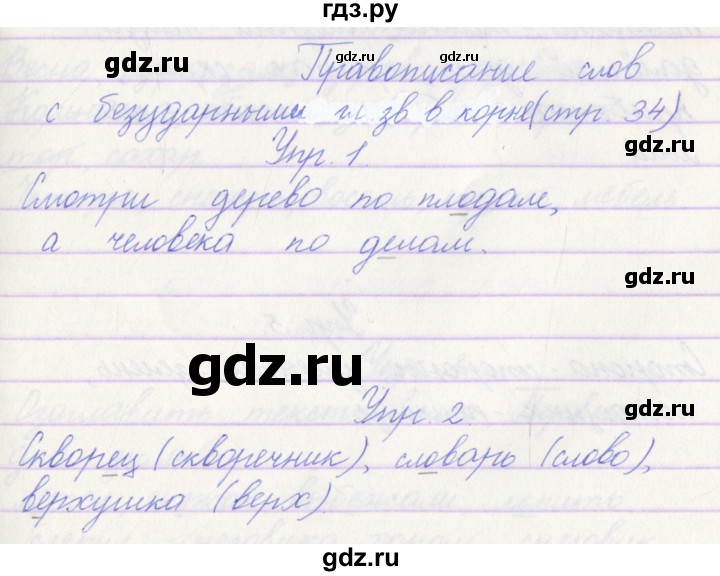 гдз.ру
gdz.ru gdz.ru
Правописание слов
с безударными гл. зв. в корне(стр. 34)
Упр. 1.
gdz.ru
Смотри дерево по плодам,
а человека по делам.
gdz.ru gdz.ru
gdz.ru
gdz.ru
Упр. 2.
Скворец (скворечник), словарь (слово),
верхушка (верх).
gdz.ru
gdz.ru
gdz.ru